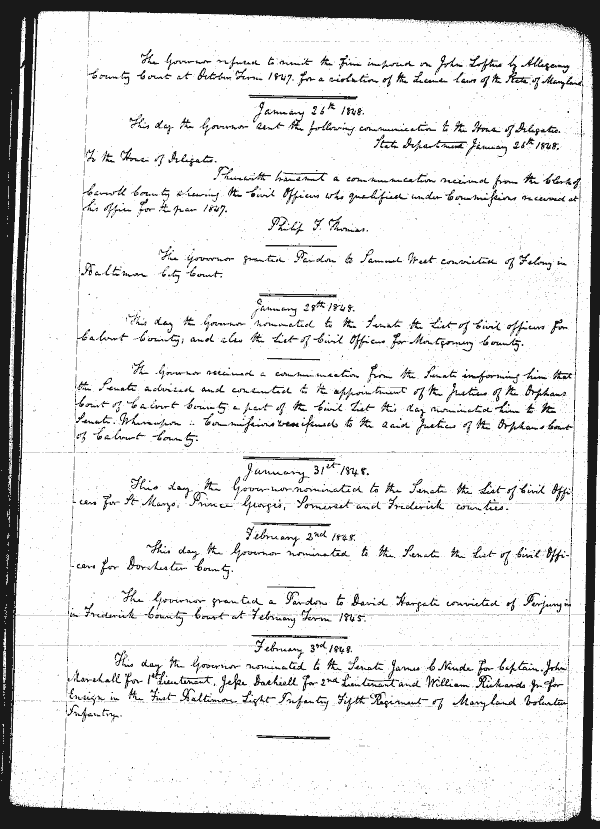 The Governor refused to remit the fine imposed on John Loftus by Allegany
County Court at October Term 1847. for a violation of the License laws of the State of Maryland.
January 26th 1848.
This day the Governor sent the following communication to the House of Delegates.
State Department January 26th 1848.
To the House of Delegates.
I herewith transmit a communication received from the Clerk of
Carroll County shewing the Civil Officers who qualified under Commissions received at
his office for the year 1847.
Philip F. Thomas.
The Governor granted Pardon to Samuel West convicted of Felony in
Baltimore City Court.
January 28th 1848.
This day the Governor nominated to the Senate the List of Civil officers for
Calvert County, and also the List of Civil Officers for Montgomery County.
The Governor received a communication from the Senate informing him that
the Senate advised and consented to the appointment of the Justices of the Orphans
Court of Calvert County a part of the Civil List this day nominated him to the
Senate. Whereupon Commissions were issued to the said Justices of the Orphans Court
of Calvert County.
January 31st 1848.
This day the Governor nominated to the Senate the List of Civil Offi-
cers for St Marys, Prince George's, Somerset and Frederick counties.
February 2nd 1848.
This day the Governor nominated to the Senate the List of Civil Offi-
cers for Dorchester County.
The Governor granted a Pardon to David Hargate convicted of Perjury in
in Frederick County Court at February Term 1845.
February 3rd 1848.
This day the Governor nominated to the Senate James C for Captain, John
Marshall for 1st Lieutenant, Jesse Dashiell for 2nd Lieutenant and William Richards Jr for
Ensign in the First Baltimore Light Infantry Fifth Regiment of Maryland Volunteer
Infantry.